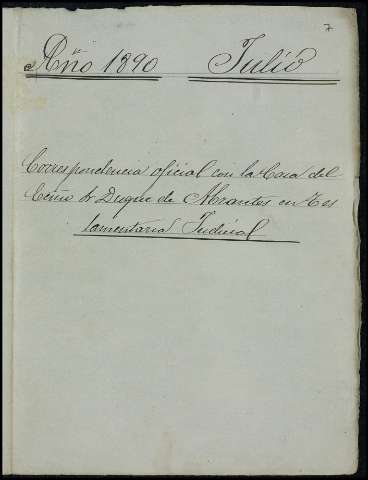 7
Año 1890 Julio
Correspondencia oficial con la Casa del
Exmo Sr Duque de Abrantes en Tes
tamentaria Judicial